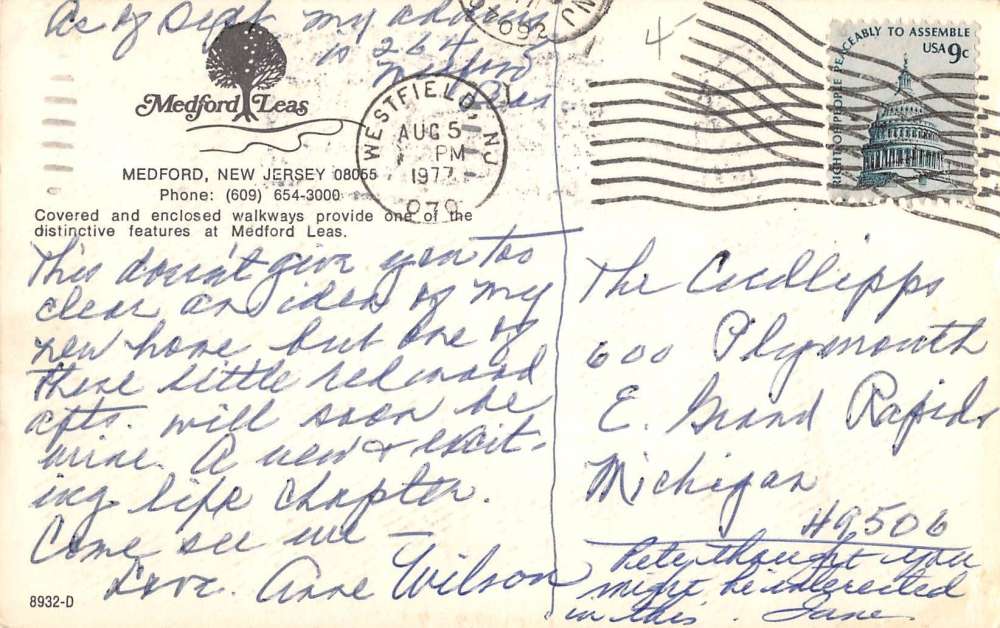 As of Sept. my address
is 264
Medford
Leas
Medford Leas
MEDFORD, NEW JERSEY 08055
Phone: (609) 654-3000
Covered and enclosed walkways provide one of the
distinctive features at Medford Leas.
WESTFIELD, NJ
AUG 5
PM
1977
RIGHT OF PEOPLE PEACEABLY TO ASSEMBLE
USA 9c
This doesn't give you too
clear an idea of my
new home but one of
these little redwood
apts. will soon be
mine. A new & excit-
ing life chapter.
Come see me –
Love. Anne Wilson
The Cudlipps
600 Plymouth
E. Grand Rapids
Michigan
49506
Pete thought you
might be interested
in this. Jane
8932-D